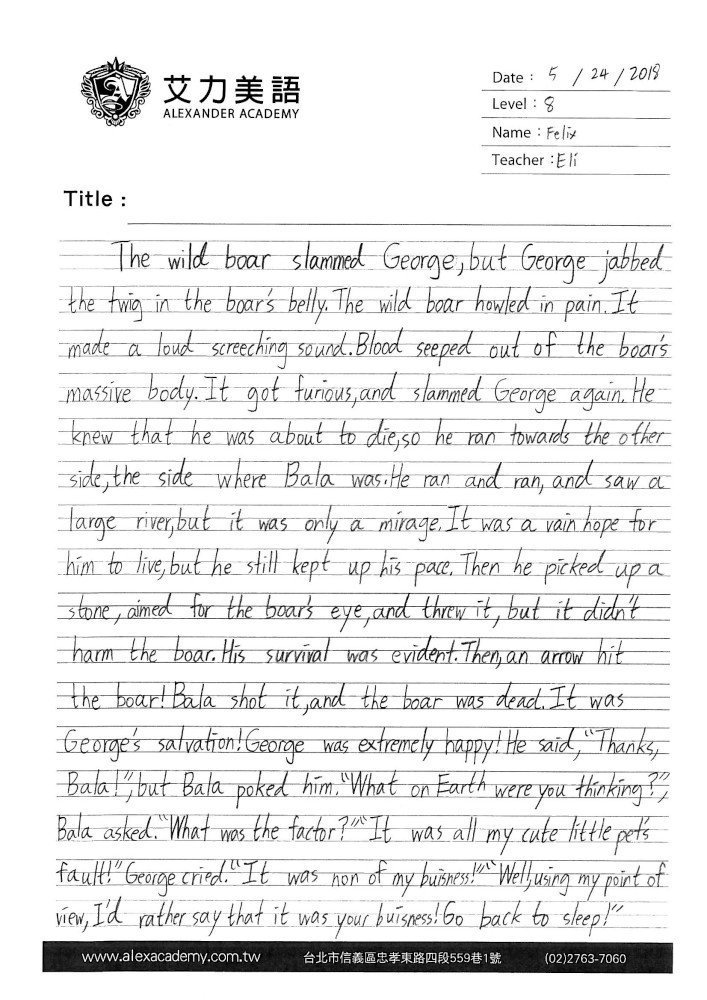 艾力美語
ALEXANDER ACADEMY
Date : 5 / 24 / 2018
Level : 8
Name : Felix
Teacher : Eli
Title :
The wild boar slammed George, but George jabbed
the twig in the boar's belly. The wild boar howled in pain. It
made a loud screeching sound. Blood seeped out of the boar's
massive body. It got furious, and slammed George again. He
knew that he was about to die, so he ran towards the other
side, the side where Bala was. He ran and ran, and saw a
large river, but it was only a mirage. It was a vain hope for
him to live, but he still kept up his pace. Then he picked up a
stone, aimed for the boar's eye, and threw it, but it didn't
harm the boar. His survival was evident. Then, an arrow hit
the boar! Bala shot it, and the boar was dead. It was
George's salvation! George was extremely happy! He said, "Thanks,
Bala!", but Bala poked him. "What on Earth were you thinking?",
Bala asked. "What was the factor?" "It was all my cute little pet's
fault!" George cried. "It was non of my buisness!" "Well, using my point of
view, I'd rather say that it was your buisness! Go back to sleep!"
www.alexacademy.com.tw 台北市信義區忠孝東路四段559巷1號 (02)2763-7060